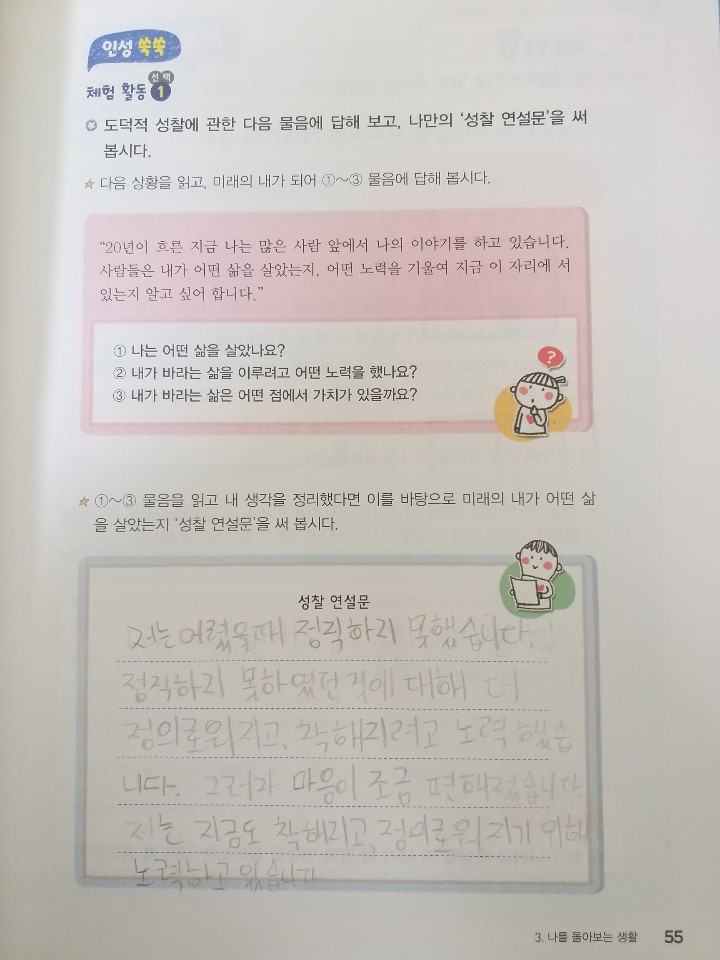 인성 쑥쑥
체험 활동 선택 1
도덕적 성찰에 관한 다음 물음에 답해 보고, 나만의 ‘성찰 연설문’을 써
봅시다.
다음 상황을 읽고, 미래의 내가 되어 ①~③ 물음에 답해 봅시다.
“20년이 흐른 지금 나는 많은 사람 앞에서 나의 이야기를 하고 있습니다.
사람들은 내가 어떤 삶을 살았는지, 어떤 노력을 기울여 지금 이 자리에 서
있는지 알고 싶어 합니다.”
① 나는 어떤 삶을 살았나요?
② 내가 바라는 삶을 이루려고 어떤 노력을 했나요?
③ 내가 바라는 삶은 어떤 점에서 가치가 있을까요?
?
①~③ 물음을 읽고 내 생각을 정리했다면 이를 바탕으로 미래의 내가 어떤 삶
을 살았는지 ‘성찰 연설문’을 써 봅시다.
성찰 연설문
저는 어렸을때 정직하지 못했습니다.
정직하지 못하였던 것에 대해 더
정의로워지고, 착해지려고 노력 했습
니다. 그러자 마음이 조금 편해졌습니다.
저는 지금도 착해지고, 정의로워 지기 위해
노력하고 있습니다.
3. 나를 돌아보는 생활 55